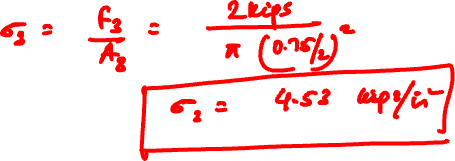 σ₃ = F₃/A₃ = 2 kips / π (0.75/2)²
σ₃ = 4.53 kips/in²